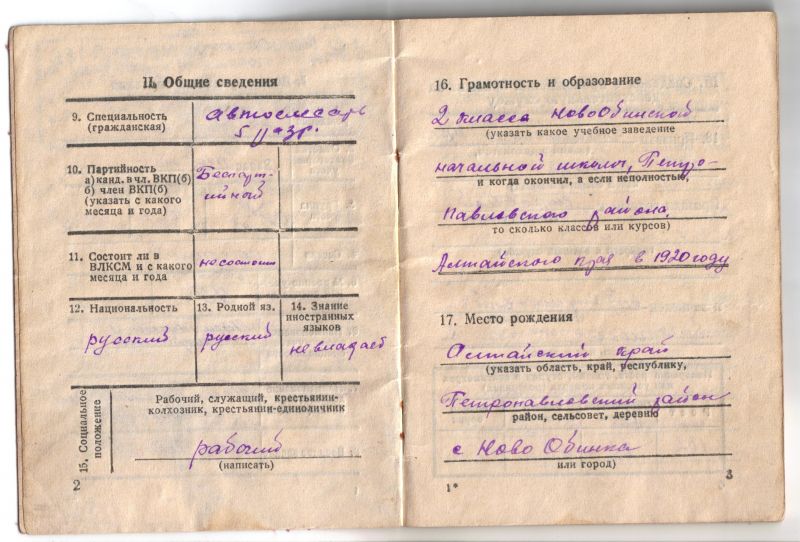 II. Общие сведения
9. Специальность
(гражданская)
автослесарь
5 разр.
10. Партийность
а) канд. в чл. ВКП(б)
б) член ВКП(б)
(указать с какого
месяца и года)
Беспарт-
ийный
11. Состоит ли в
ВЛКСМ и с какого
месяца и года
не состоит
12. Национальность
русский
13. Родной яз.
русский
14. Знание
иностранных
языков
не владает
15. Социальное
положение
Рабочий, служащий, крестьянин-
колхозник, крестьянин-единоличник
рабочий
(написать)
2
16. Грамотность и образование
2 класса НовоОбинской
(указать какое учебное заведение
начальной школы, Петро-
и когда окончил, а если неполностью,
Павловского района,
то сколько классов или курсов)
Алтайского края в 1920 году
17. Место рождения
Алтайский край
(указать область, край, республику,
Петропавловский район
район, сельсовет, деревню
с Ново Обинка
или город)
1*
3